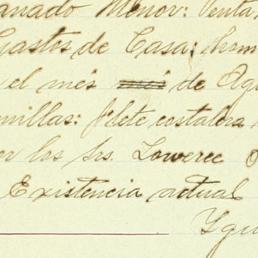 Menor: Venta
Gastos de Casa:
el més de
flete costalera
los Srs. Lowerec
Existencia actual